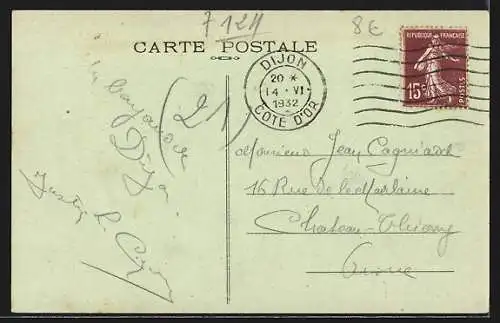 7 124
8€
CARTE POSTALE
DIJON
20 *
14 · VI ·
1932
COTE D'OR
REPUBLIQUE FRANÇAISE
15c
POSTES
(21)
Dijon
Monsieur Jean Cagniard
16 Rue de la Madeleine
Chateau-Thierry
Aisne